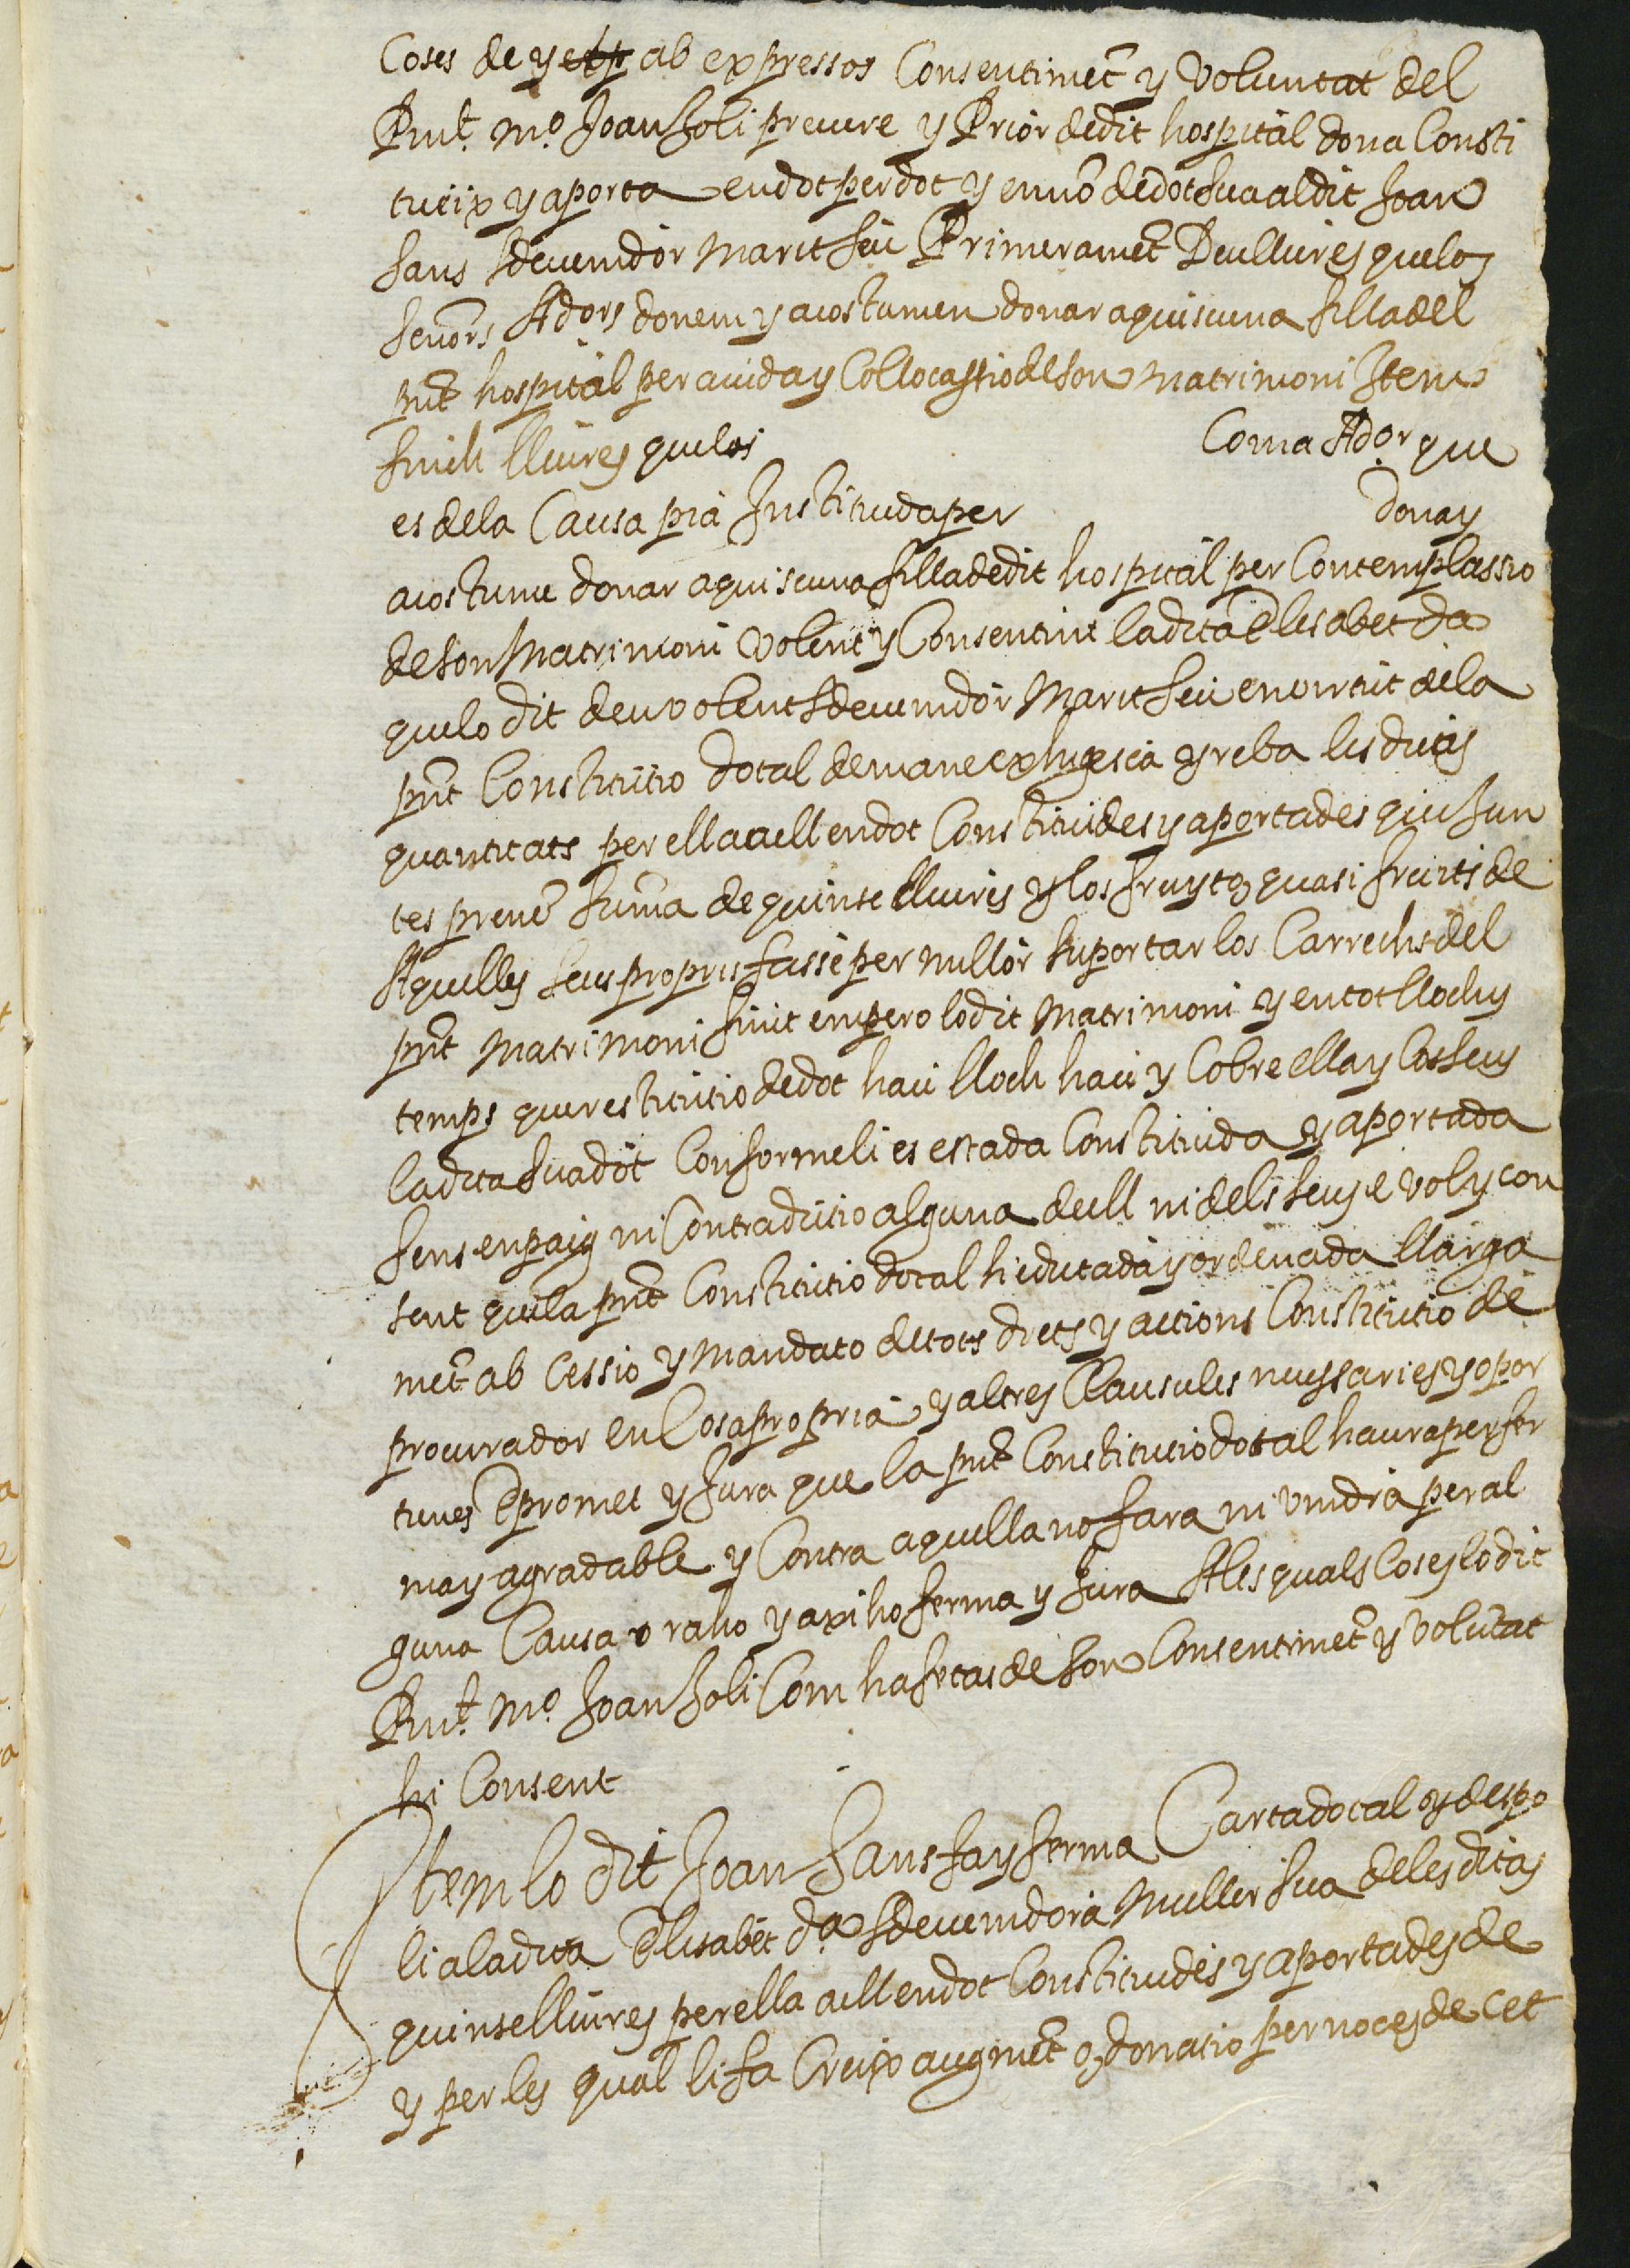 Coses de y etp ab expressos Consentimēt y Voluntat del
Rnt. mo. Joan Soli prevere y Prior de dit hospital dona Consti
tueix y aporta en dot per dot y en nō de dot sua al dit Joan
Sans sdevenidor Marit seu Primeramēt Deu lliures que los
senōrs Adors donen y acostumen donar a quiscuna filla del
pnt hospital per aiuda y Collocassio de son matrimoni Item
sinch lliures que los Com a Ador que
es de la Causa pia Instituida per dona y
acostume donar a quiscuna filla de dit hospital per Contemplassio
de son Matrimoni Volent y Consentint la dita Elisabet da
que lo dit
pnt Constitutio dotal de mane exhigesca y reba les dites
quantitats per ella a ell en dot Constituides y aportades qui sun
tes prenē suma de quinse lliures y los fruyts quasi fruits de
Aquelles seus propris fasse per millor suportar los Carrechs del
pnt Matrimoni finit empero lo dit Matrimoni y en tot lloch y
temps que restitutio de dot haie lloch haie y Cobre ella y los seus
la dita sua dot Conforme li es estada Constituida y aportada
sens enpaig ni Contradictio alguna de ell ni dels seus e vol y con
sent que la pnt Constitutio dotal sie dictada y ordenada llarga
mēt ab Cessio y Mandato de tots drets y actions Constitutio de
procurador en Cosa propria y altres Clausules nessaries y opor
tunes E promet y Jura que la pnt Constitutio dotal haura per fer
ma y agradable y Contra aquella no fara ni vindra per al
guna Causa o raho y axi ho ferma y Jura A les quals Coses lo dit
Rnt. mo. Joan Soli Com ha fetas de son Consentimēt y volūtat
hi Consent
Item lo dit Joan Sans fa y ferma Carta dotal y de spo
li a la dita Elisabet da sdevenidora Muller sua de les ditas
quinse lliures per ella a ell en dot Constituides y aportades de
y per les qual li fa Creix augmēt o donatio per noces de Cet